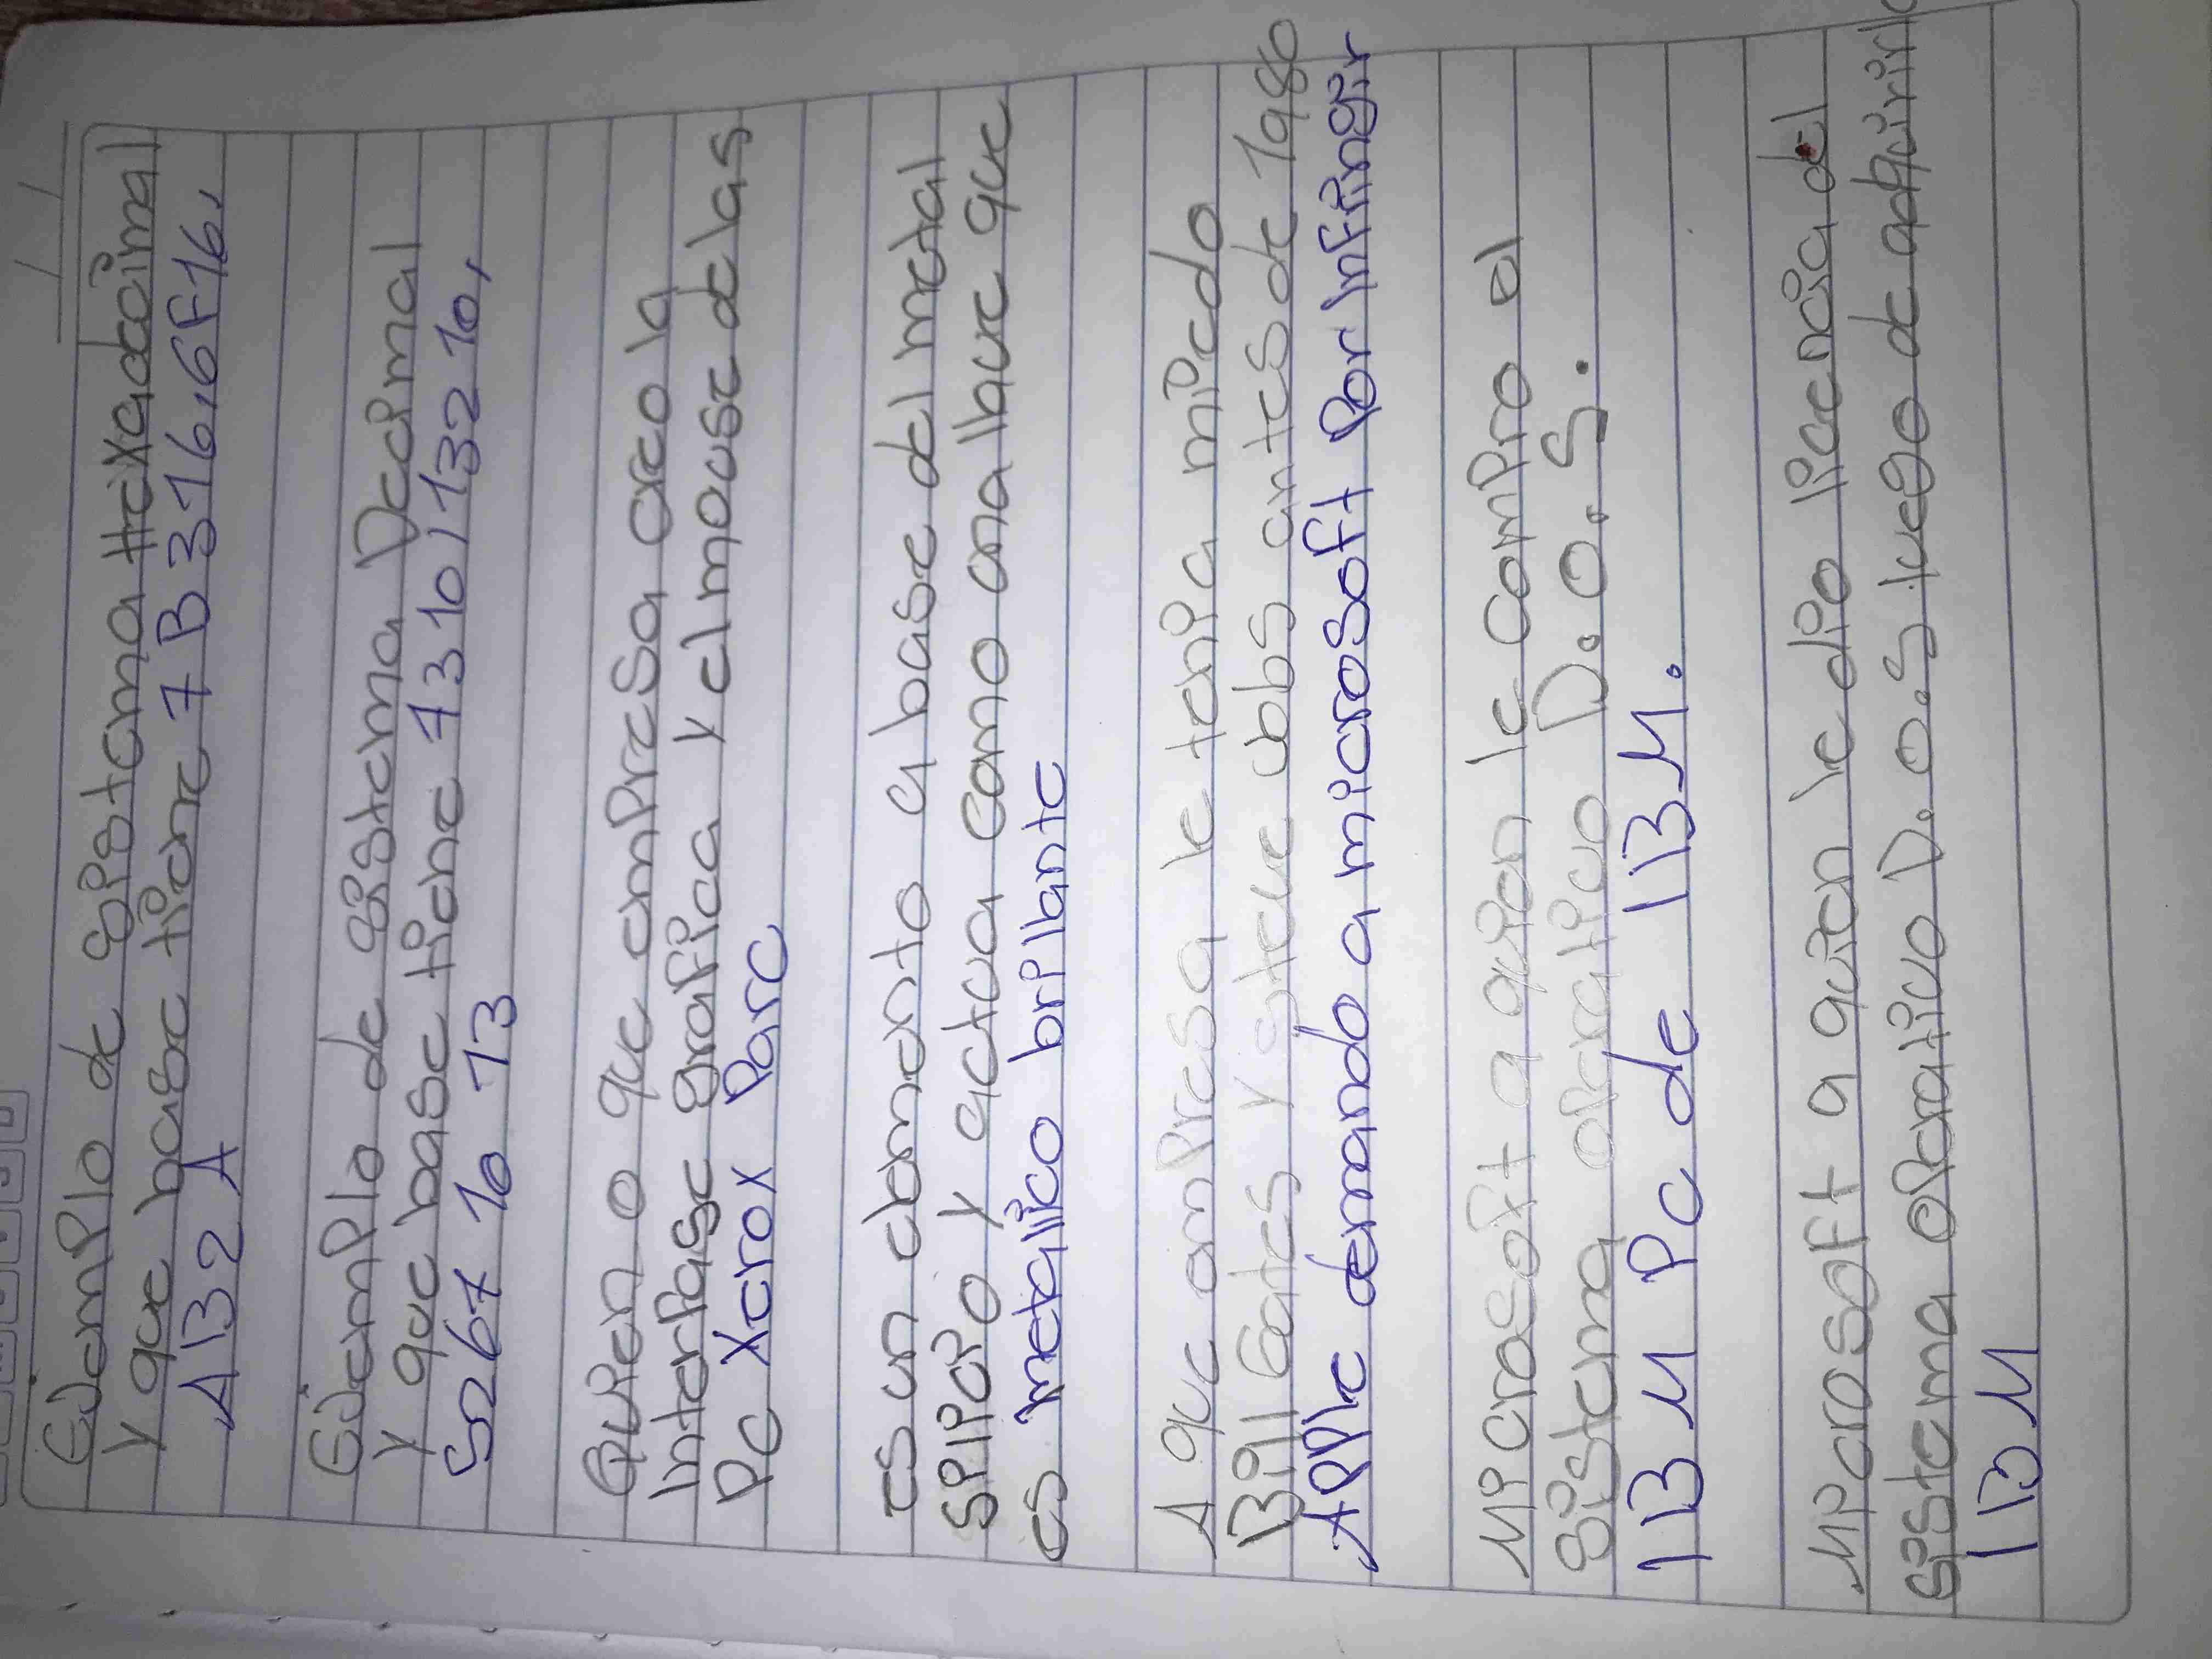 Ejemplo de sistema Hexadecimal
y que base tiene 7 B 3 16, 6F16,
AB2 A
Ejemplo de sistema Decimal
y que base tiene 7310/132 10,
5267 10 73
Quien o que empresa creo la
Interfase grafica y el mouse de las
PC Xerox Parc
es un elemento a base del metal
silicio y actua como una llave que
es metalico brillante
A que empresa le tenia miedo
Bill Gates y steve Jobs antes de 1980
Apple demando a microsoft por Infringir
Microsoft a quien le compro el
Sistema operativo D.O.S.
IBM Pc de IBM.
Microsoft a quien le dio licencia del
sistema operativo D.O.S luego de adquirirlo
IBM